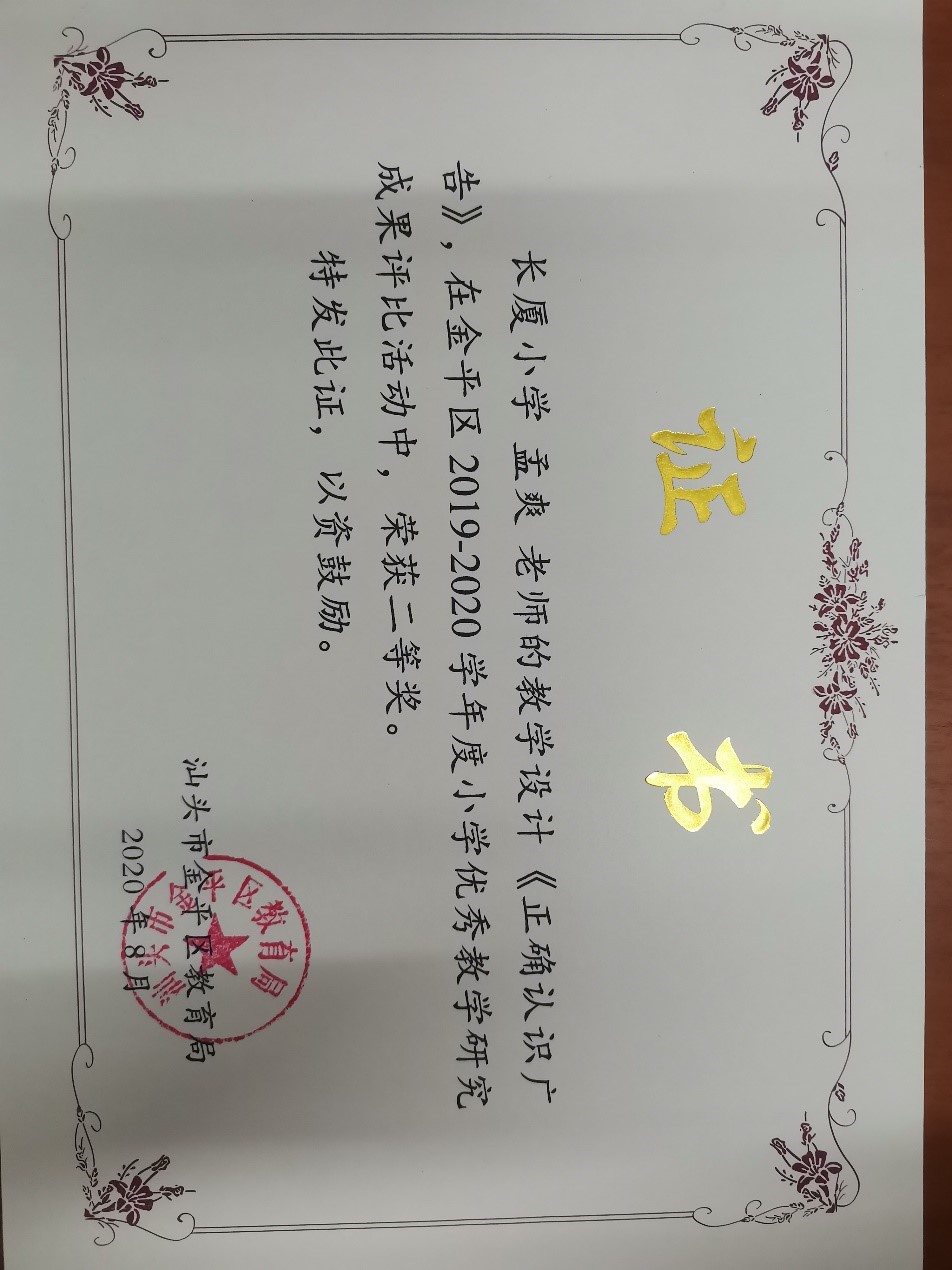 证 书
长厦小学 孟爽 老师的教学设计《正确认识广
告》，在金平区 2019-2020 学年度小学优秀教学研究
成果评比活动中，荣获二等奖。
特发此证，以资鼓励。
汕头市金平区教育局
2020 年 8 月
汕头市金平区教育局